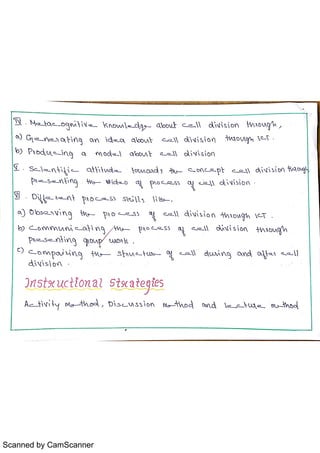 IV. Metacognitive knowledge about cell division through,
a) Generating an idea about cell division through ICT.
b) Producing a model about cell division
V. Scientific attitude towards the concept cell division through
presenting the video of process of cell division.
VI. Different process skills like,
a) Observing the process of cell division through ICT.
b) Communicating the process of cell division through
presenting group work.
c) Comparing the structure of cell during and after cell
division.
Instructional Strategies
Activity method, Discussion method and lecture method
Scanned by CamScanner